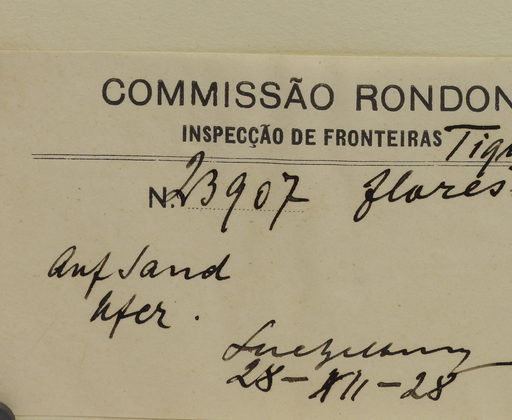 COMMISSÃO RONDON
INSPECÇÃO DE FRONTEIRAS
N. 23907 flores
Auf Sand
Ufer.
Luetzelburg
28-XII-28